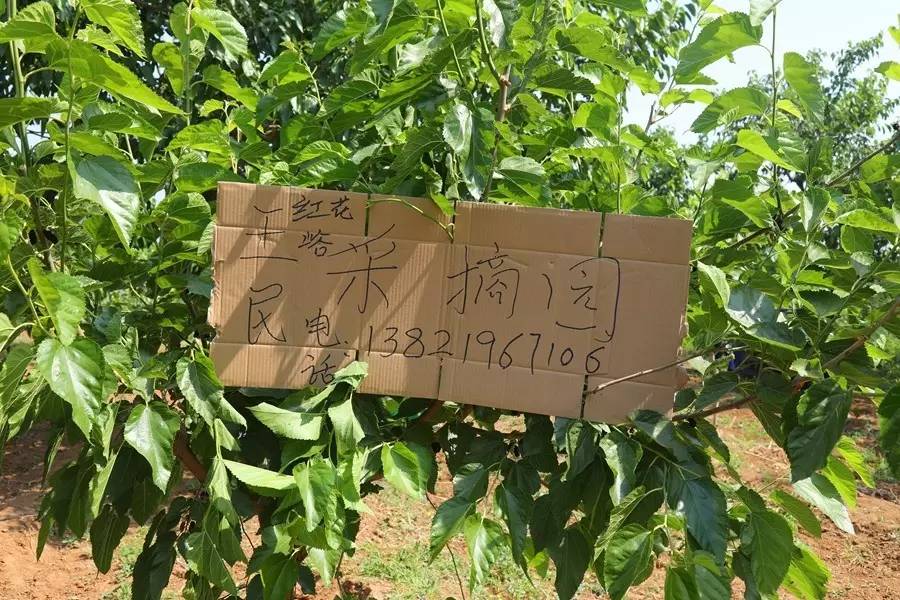 红花
峪
王民
采摘园
电话
13821967106